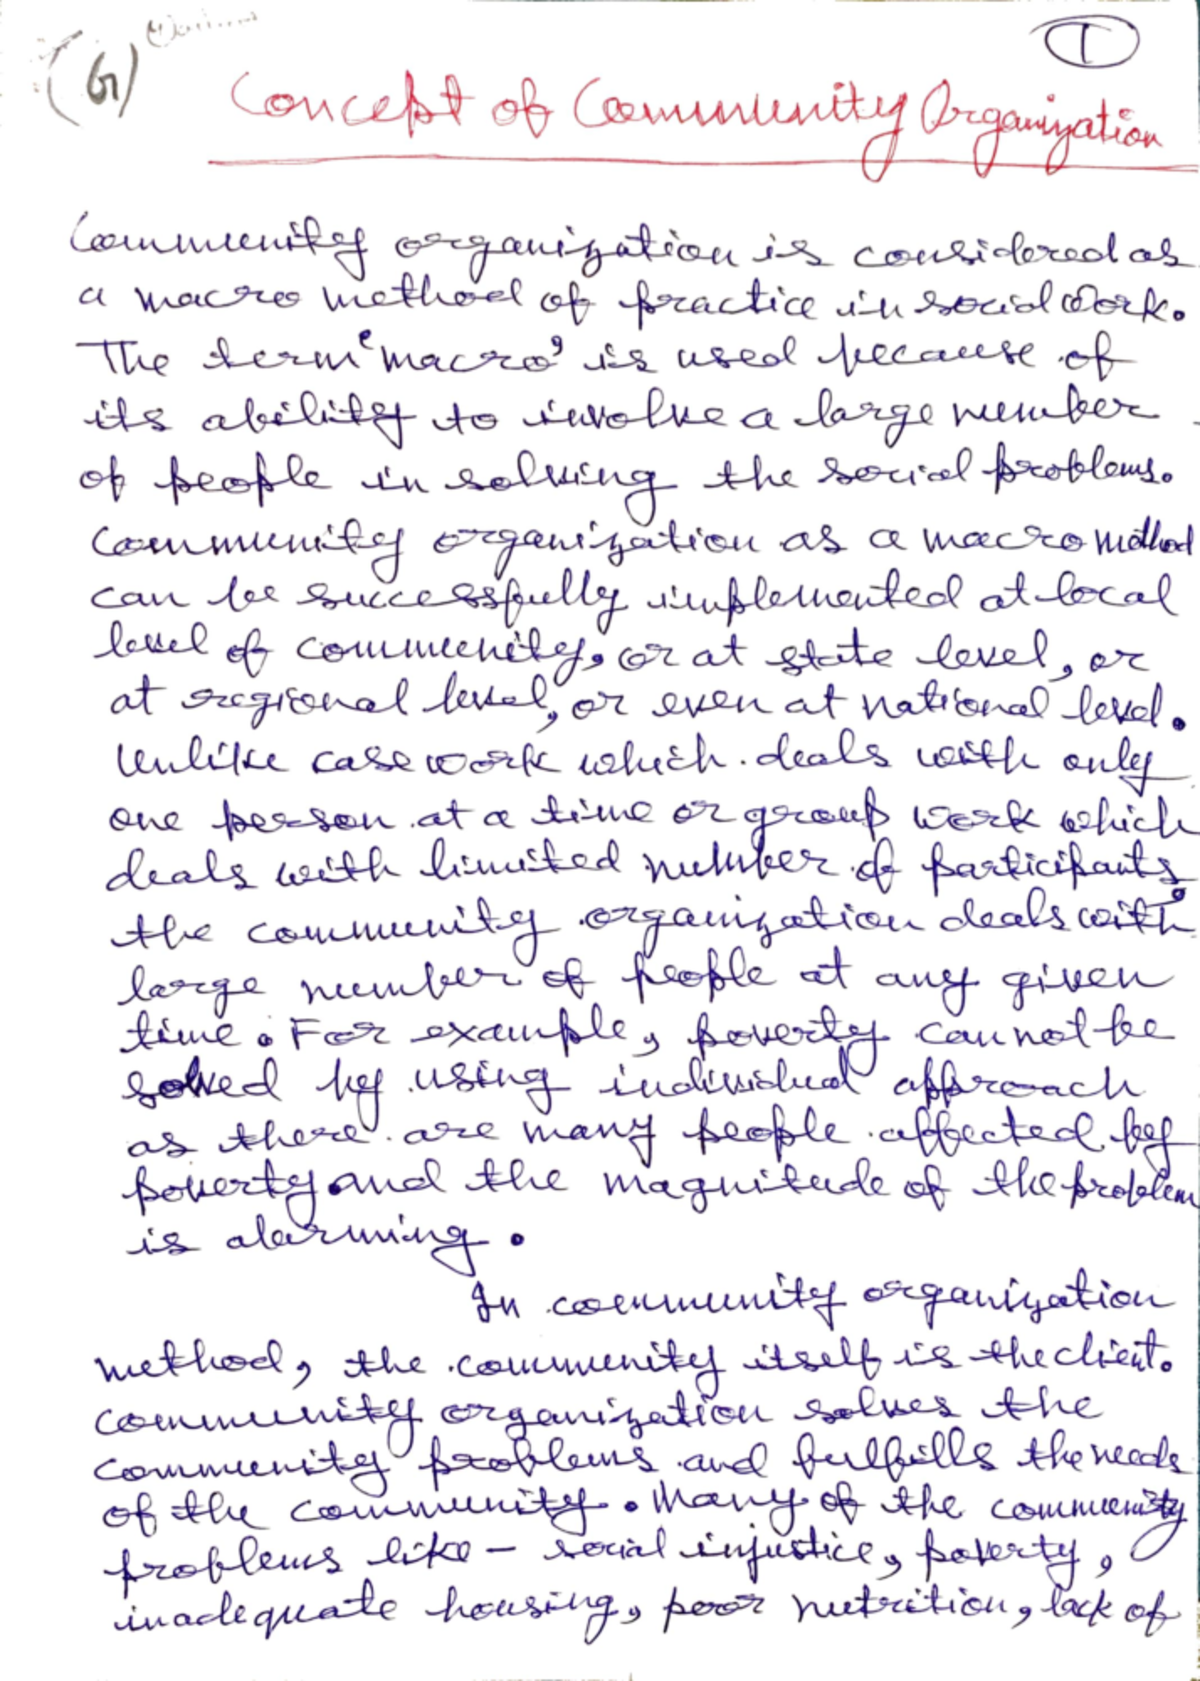 (G)
1
Concept of Community Organization
Community organization is considered as
a macro method of practice in social work.
The term 'macro' is used because of
its ability to involve a large number
of people in solving the social problems.
Community organization as a macro method
can be successfully implemented at local
level of community, or at state level, or
at regional level, or even at national level.
Unlike case work which deals with only
one person at a time or group work which
deals with limited number of participants,
the community organization deals with
large number of people at any given
time. For example, poverty cannot be
solved by using individual approach
as there are many people affected by
poverty and the magnitude of the problem
is alarming.
In community organization
method, the community itself is the client.
Community organization solves the
community problems and fulfills the needs
of the community. Many of the community
problems like - social injustice, poverty,
inadequate housing, poor nutrition, lack of